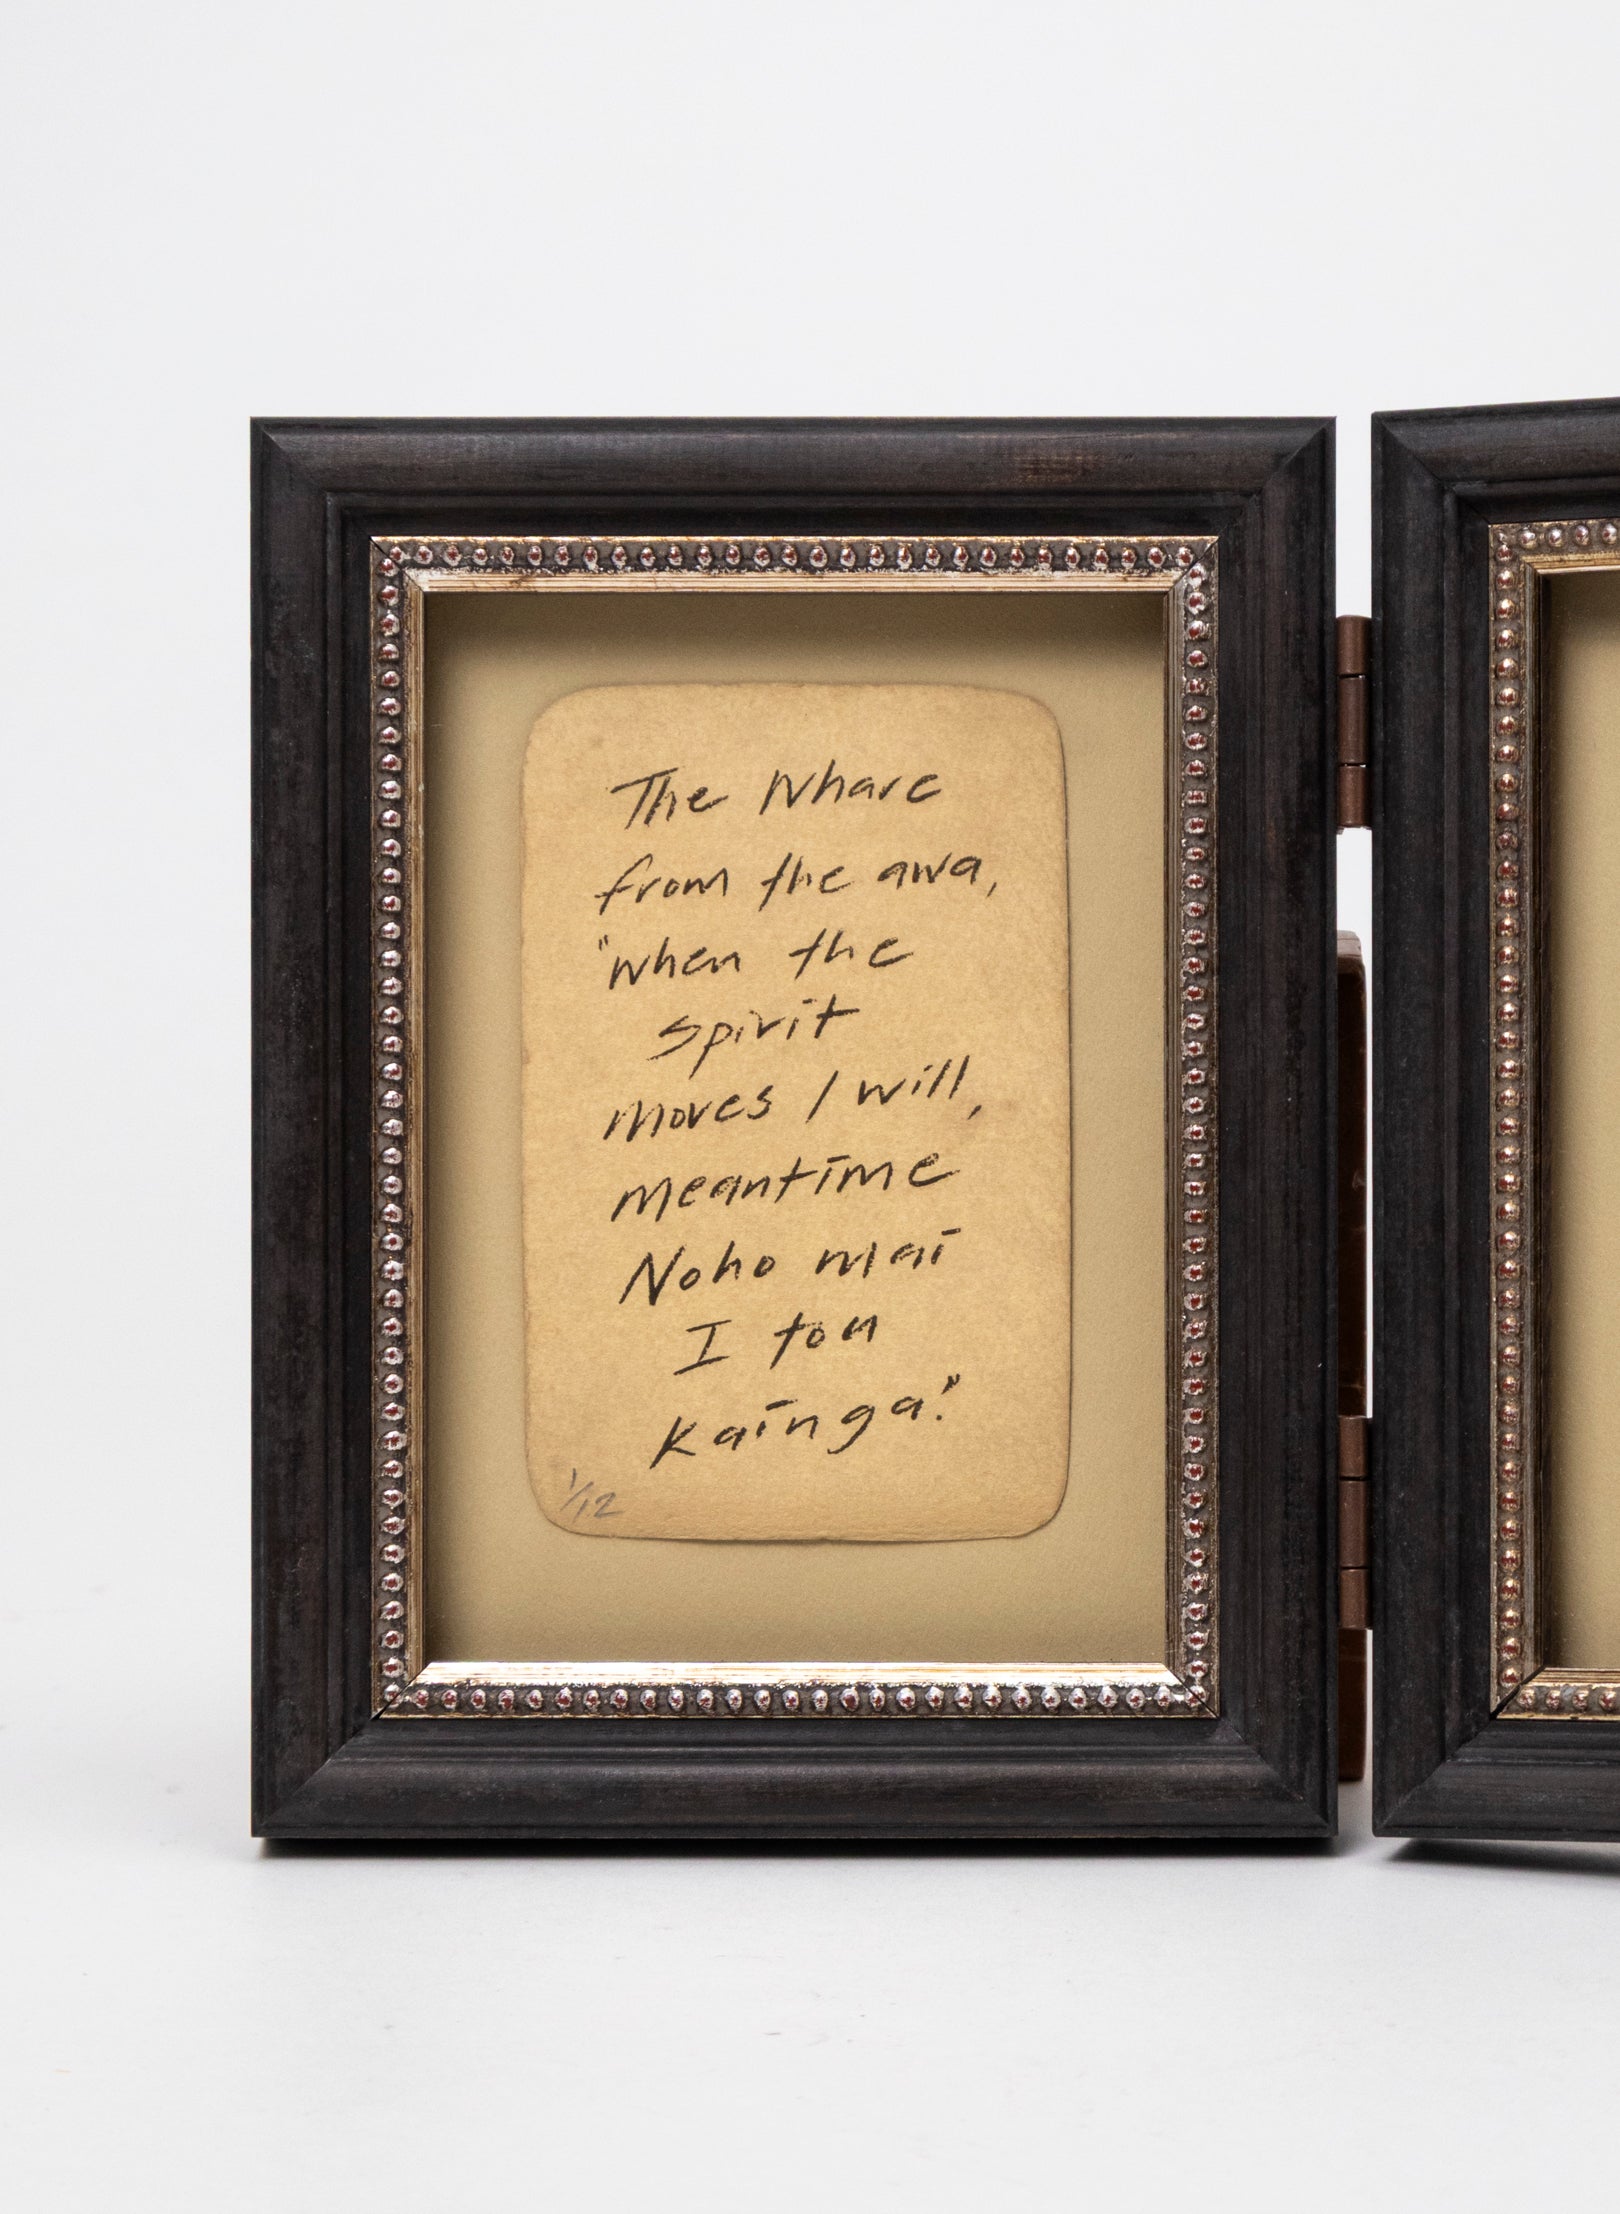 The Whare
from the awa,
"when the
spirit
moves I will,
meantime
Noho mai
I tou
Kainga."
1/12